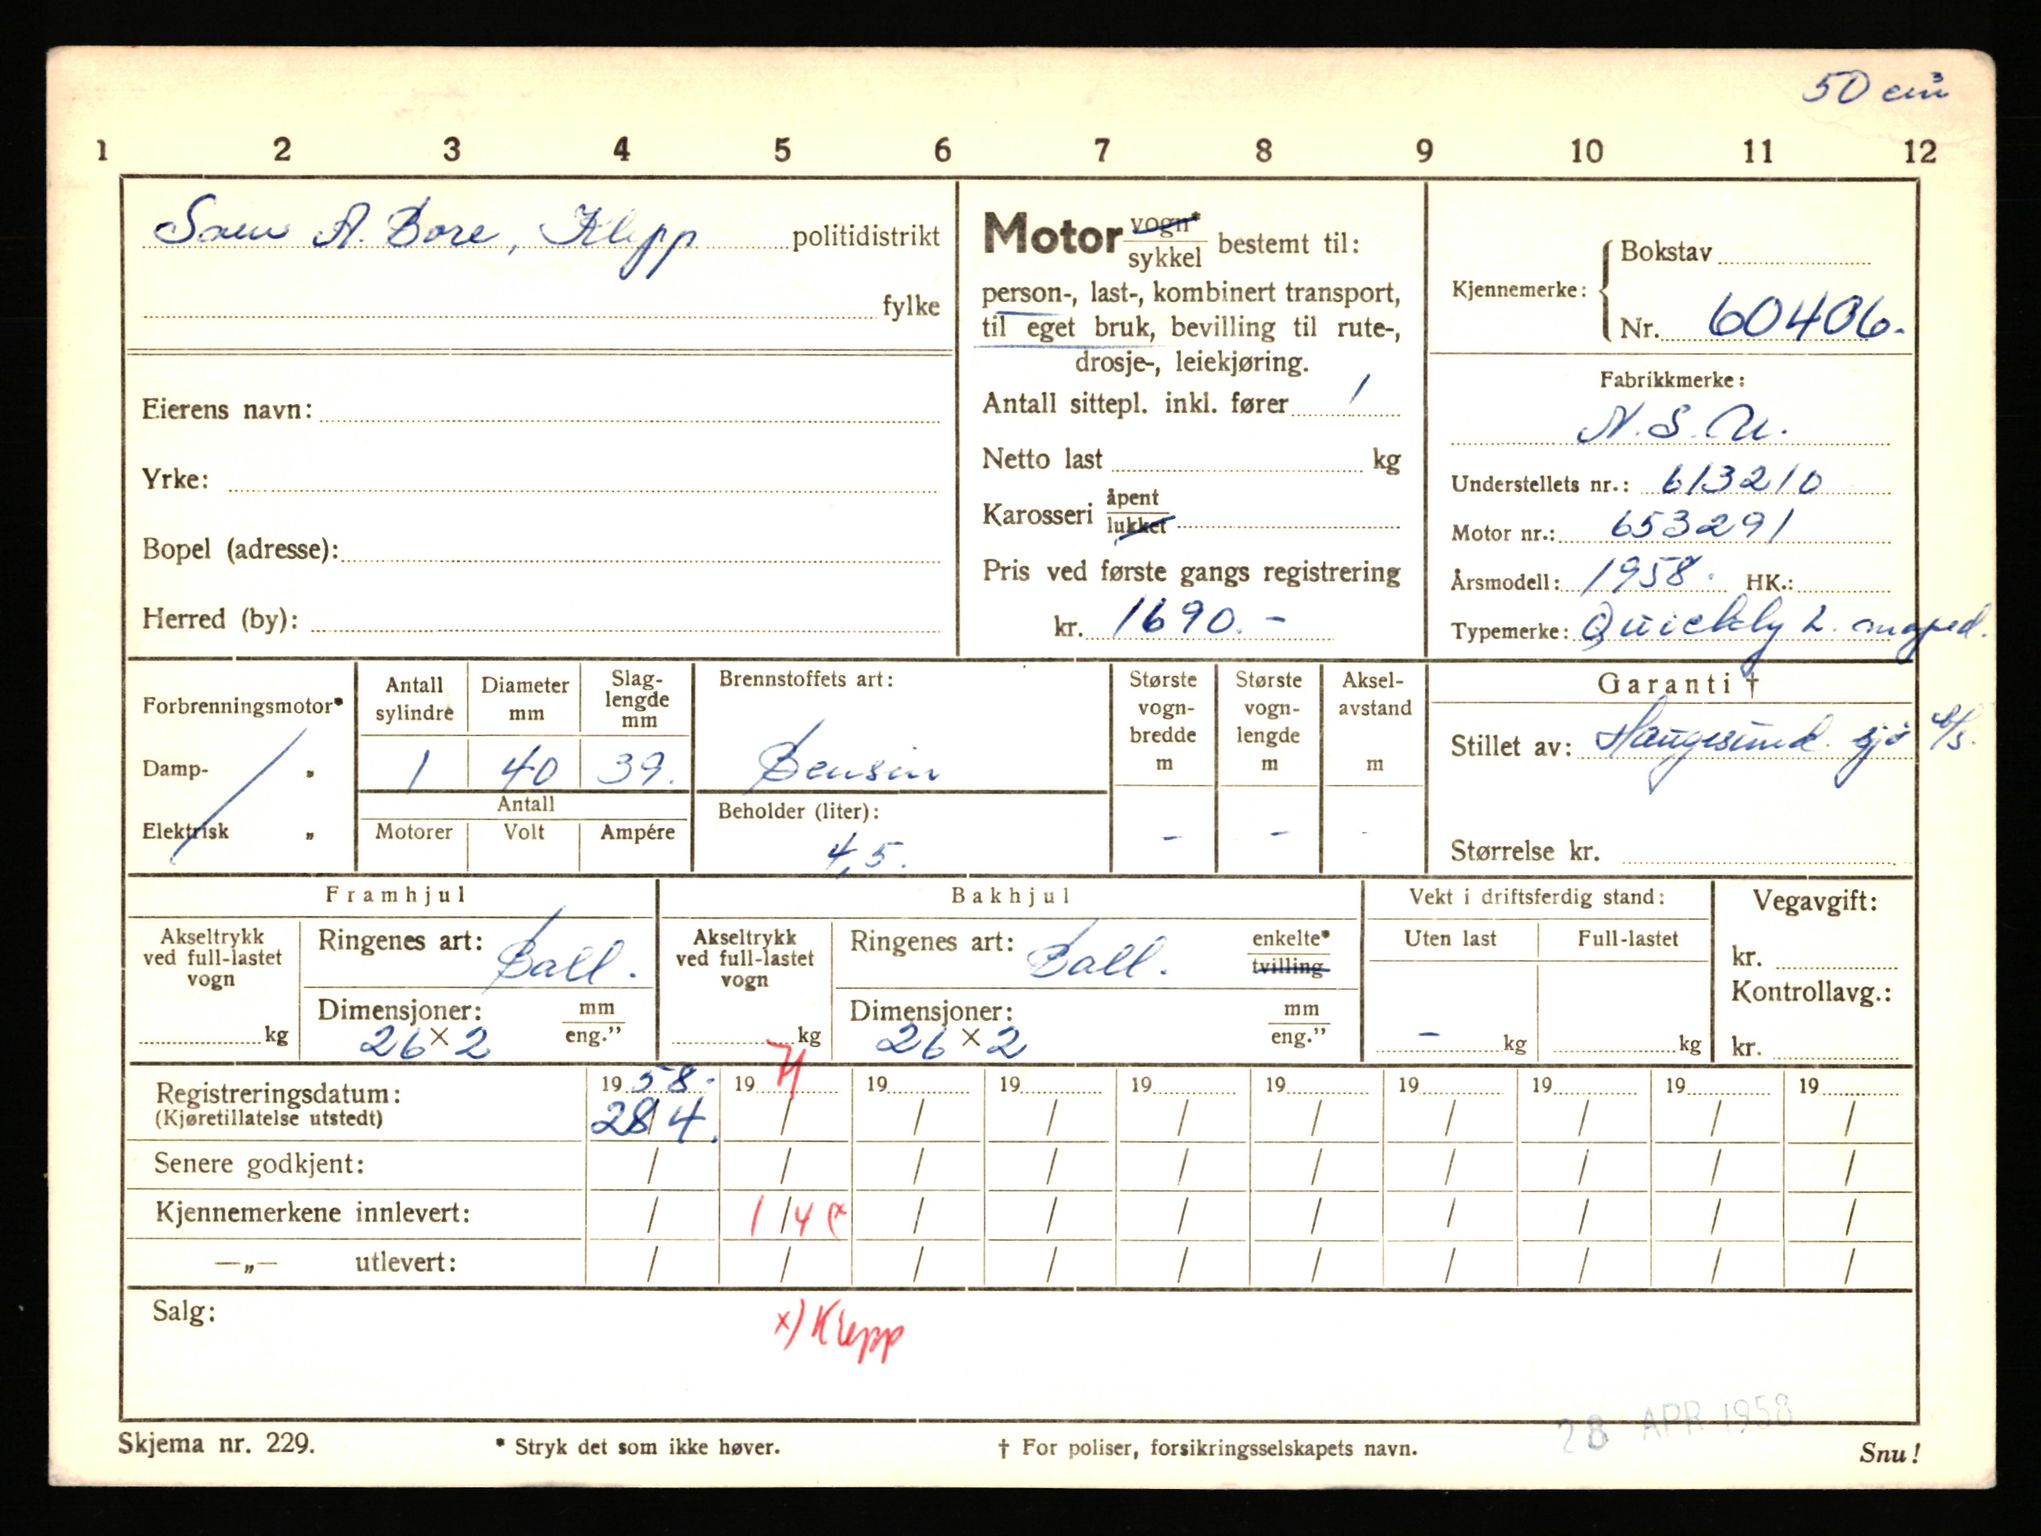 50 cm³
1 2 3 4 5 6 7 8 9 10 11 12
A. Bore, Klepp politidistrikt
fylke
Eierens navn:
Yrke:
Bopel (adresse):
Herred (by):
Motor vogn* / sykkel bestemt til:
person-, last-, kombinert transport,
til eget bruk, bevilling til rute-,
drosje-, leiekjøring.
Antall sittepl. inkl. fører 1
Netto last kg
Karosseri åpent / lukket
Pris ved første gangs registrering
kr. 1690.-
Kjennemerke: Bokstav
Nr. 60406.
Fabrikkmerke:
N.S.U.
Understellets nr.: 613210
Motor nr.: 653291
Årsmodell: 1958. HK.:
Typemerke: Quickly L. moped.
Forbrenningsmotor*
Damp- „
Elektrisk „
Antall sylindre
Diameter mm
Slag-lengde mm
1 40 39.
Antall
Motorer Volt Ampére
Brennstoffets art:
Bensin
Beholder (liter):
4,5.
Største vogn-bredde m
-
Største vogn-lengde m
-
Aksel-avstand m
-
Garanti †
Stillet av: Haugesund Sjø A/S.
Størrelse kr.
Framhjul
Akseltrykk ved full-lastet vogn
kg
Ringenes art: Ball.
Dimensjoner: mm / eng.”
26 x 2
Bakhjul
Akseltrykk ved full-lastet vogn
kg
Ringenes art: Ball. enkelte* / tvilling
Dimensjoner: mm / eng.”
26 x 2
Vekt i driftsferdig stand:
Uten last Full-lastet
- kg kg
Vegavgift:
kr.
Kontrollavg.:
kr.
Registreringsdatum: 19 58. 19 71 19 19 19 19 19 19 19 19
(Kjøretillatelse utstedt) 28/4. / / / / / / / / /
Senere godkjent: / / / / / / / / / /
Kjennemerkene innlevert: / 1/4 (x / / / / / / / /
—„— utlevert: / / / / / / / / / /
Salg:
x) Klepp
28 APR 1958
Skjema nr. 229. * Stryk det som ikke høver. † For poliser, forsikringsselskapets navn. Snu!